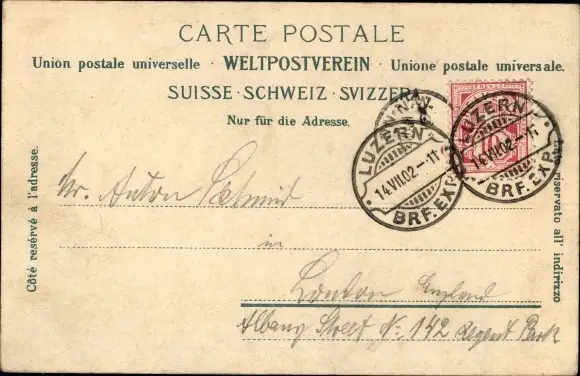 CARTE POSTALE
Union postale universelle · WELTPOSTVEREIN · Unione postale universale.
SUISSE · SCHWEIZ · SVIZZERA
Nur für die Adresse.
Côté resérvé à l'adresse.
Lato riservato all' indirizzo
FRANCO
10
LUZERN
14.VII.02.-11
BRF.EXP.
LUZERN
14.VII.02.-11
BRF.EXP.
Mr. Anton Schmid
in
London England
Albany Street No: 142 Regent Park